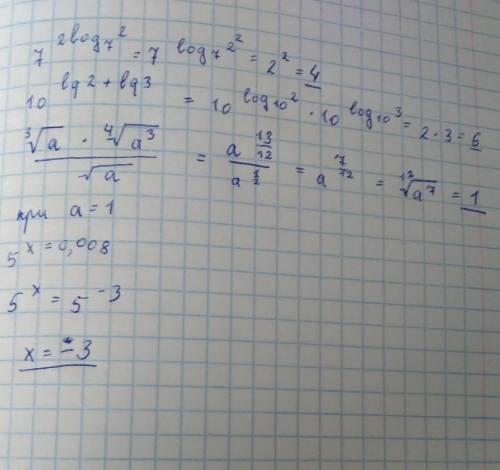 7^{2log_7 2} = 7^{log_7 2^2} = 2^2 = 4
10^{lg2 + lg3} = 10^{log_{10} 2} · 10^{log_{10} 3} = 2 · 3 = 6
\frac{\sqrt[3]{a} · \sqrt[4]{a^3}}{\sqrt{a}} = \frac{a^{\frac{13}{12}}}{a^{\frac{1}{2}}} = a^{\frac{7}{12}} = \sqrt[12]{a^7} = 1
при a = 1
5^x = 0,008
5^x = 5^{-3}
x = -3